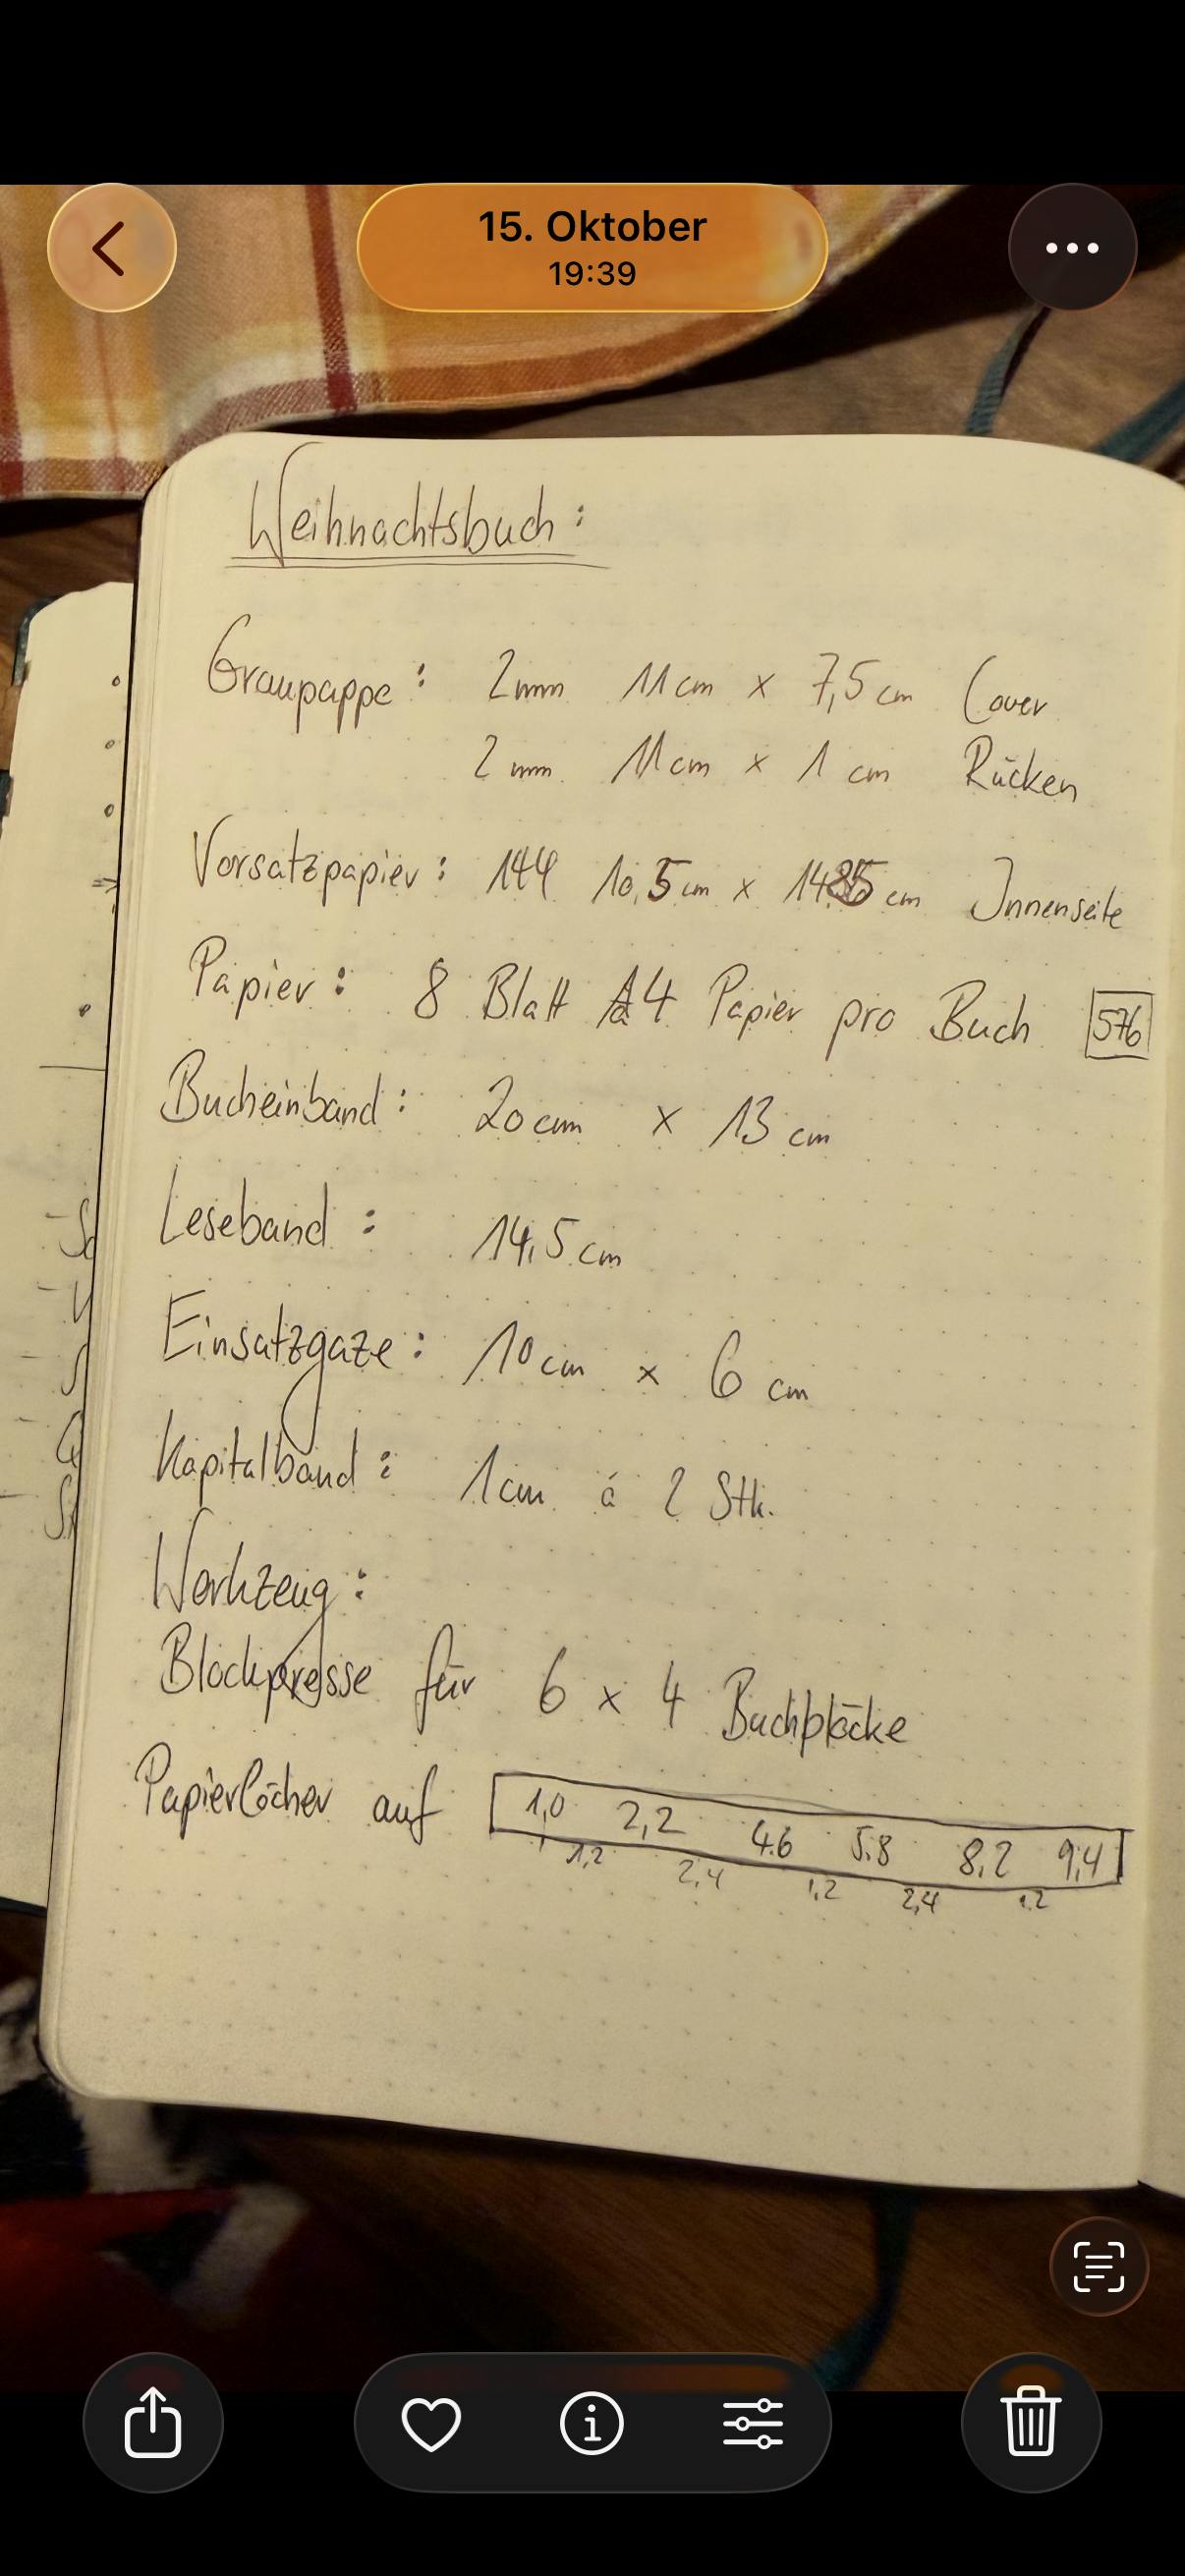 15. Oktober
19:39
Weihnachtsbuch:
Graupappe: 2mm 11cm x 7,5cm Cover
2mm 11cm x 1cm Rücken
Vorsatzpapier: 144 10,5cm x cm Innenseite
Papier: 8 Blatt A4 Papier pro Buch 576
Bucheinband: 20cm x 13cm
Leseband: 14,5cm
Einsatzgaze: 10cm x 6cm
Kapitalband: 1cm á 2 Stk.
Werkzeug:
Blockpresse für 6 x 4 Buchblöcke
Papierlöcher auf 1,0 2,2 4.6 5.8 8,2 9,4
1,2 2,4 1,2 2,4 1.2